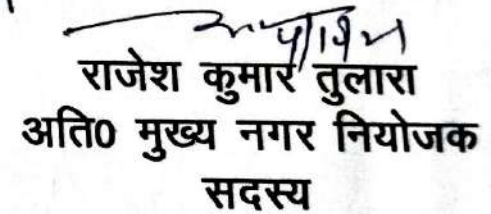 राजेश कुमार तुलारा
अति0 मुख्य नगर नियोजक
सदस्य